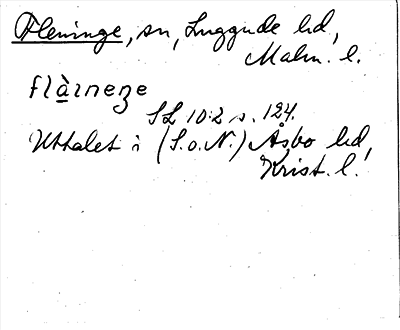 Fleninge, sn, Luggude hd,
Malm. l.
flàɪneŋe
SL 10:2 s. 124.
Uttalet i (S.o.N.) Åsbo hd,
Krist. l.